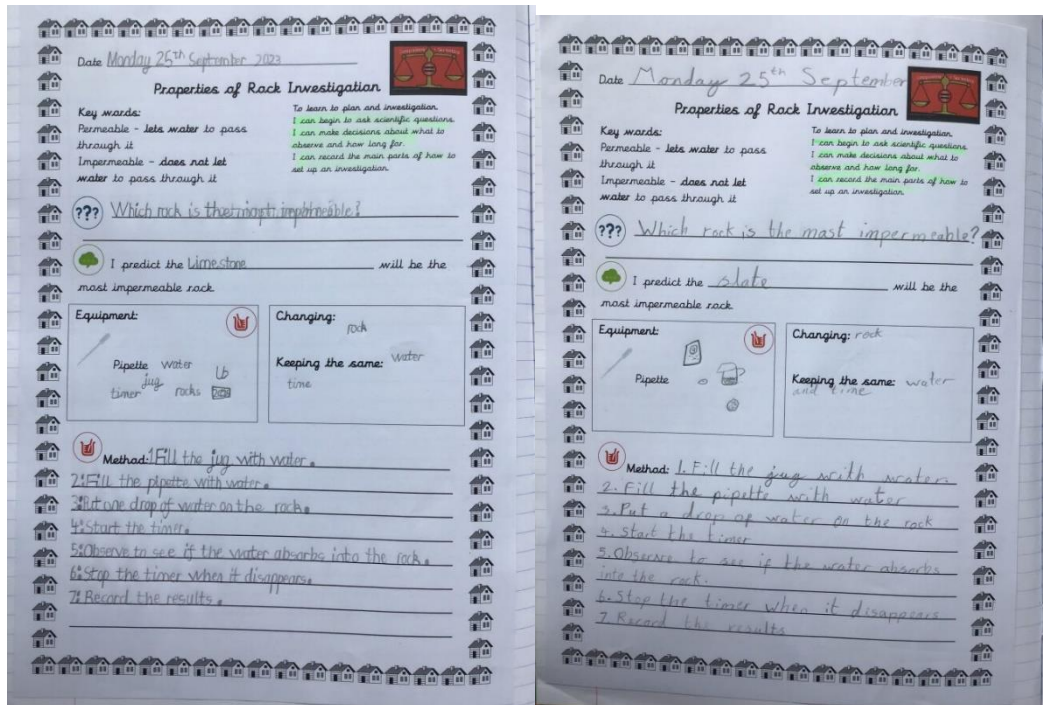 Date Monday 25th September 2023
Properties of Rock Investigation
Key words:
Permeable - lets water to pass
through it
Impermeable - does not let
water to pass through it
To learn to plan and investigation.
I can begin to ask scientific questions.
I can make decisions about what to
observe and how long for.
I can record the main parts of how to
set up an investigation.
??? Which rock is
I predict the Limestone will be the
most impermeable rock
Equipment:
Pipette water
jug
timer rocks
Changing:
rock
Keeping the same: water
time
Method: 1 Fill the jug with water.
2: Fill the pipette with water.
3: Put one drop of water on the rock.
4: Start the timer.
5: Observe to see if the water absorbs into the rock.
6: Stop the timer when it disappears.
7: Record the results.
Date Monday 25th September
Properties of Rock Investigation
Key words:
Permeable - lets water to pass
through it
Impermeable - does not let
water to pass through it
To learn to plan and investigation.
I can begin to ask scientific questions.
I can make decisions about what to
observe and how long for.
I can record the main parts of how to
set up an investigation.
??? Which rock is the mast impermeable?
I predict the slate will be the
most impermeable rock
Equipment:
Pipette
Changing: rock
Keeping the same: water
and time
Method: 1. Fill the jug with water.
2. Fill the pipette with water
3. Put a drop of water on the rock
4. Start the timer
5. Observe to see if the water absorbs
into the rock.
6. Stop the timer when it disappears
7. Record the results